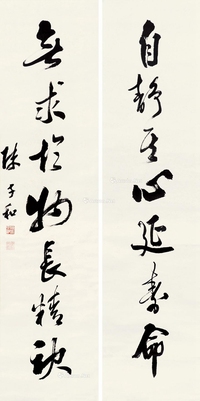 自静其心延寿命
無求於物長精神
陳子和